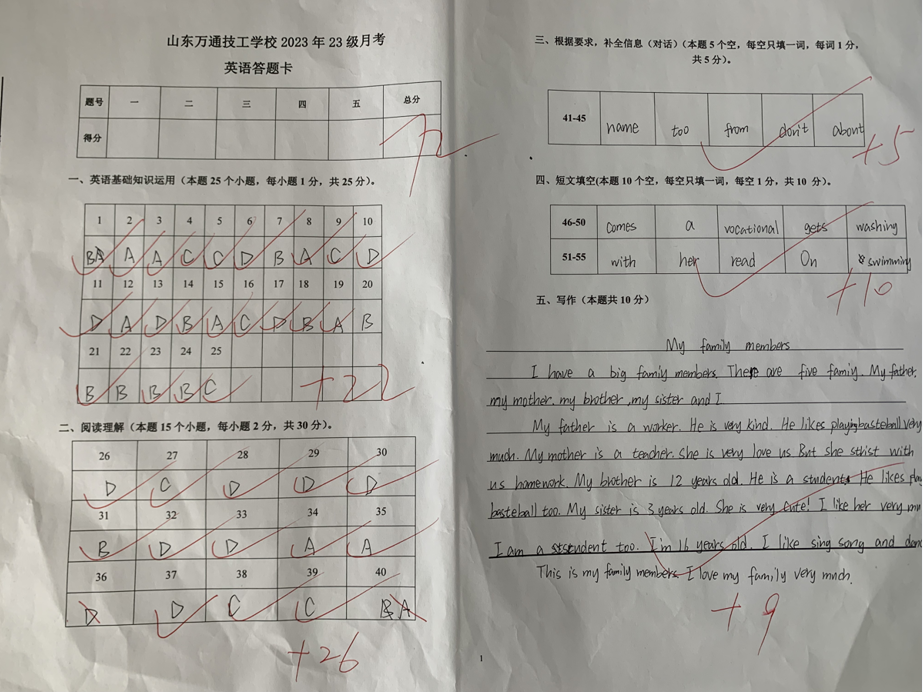 山东万通技工学校 2023 年 23 级月考
英语答题卡
题号 一 二 三 四 五 总分
得分 72
一、英语基础知识运用（本题 25 个小题，每小题 1 分，共 25 分）。
1 2 3 4 5 6 7 8 9 10
A A A C C D B A C D
11 12 13 14 15 16 17 18 19 20
D A D B A C D B A B
21 22 23 24 25
B B B B C
+22
二、阅读理解（本题 15 个小题，每小题 2 分，共 30 分）。
26 27 28 29 30
D C D D D
31 32 33 34 35
B D D A A
36 37 38 39 40
D D C C A
+26
三、根据要求，补全信息（对话）（本题 5 个空，每空只填一词，每词 1 分，
共 5 分）。
41-45 name too from don't about
+5
四、短文填空(本题 10 个空，每空只填一词，每空 1 分，共 10 分）。
46-50 comes a vocational gets washing
51-55 with her read On swimming
+10
五、写作（本题共 10 分）
My family members
I have a big family members. There are five family. My father,
my mother, my brother, my sister and I
My father is a worker. He is very kind. He likes playing basteball very
much. My mother is a teacher. She is very love us But she strist with
us homework. My brother is 12 years old. He is a student. He likes play
basteball too. My sister is 3 years old. She is very cute! I like her very mu
I am a student too. I'm 16 years old. I like sing song and danc
This is my family members. I love my family very much.
+9
1